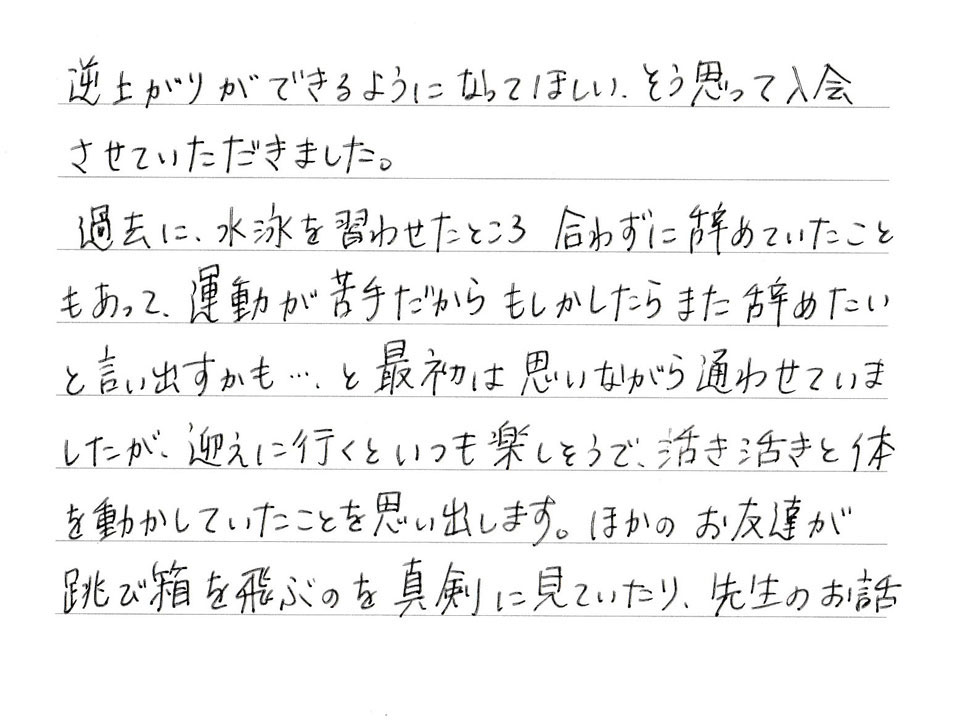 逆上がりができるようになってほしい、そう思って入会
させていただきました。
過去に、水泳を習わせたところ 合わずに辞めていたこと
もあって、運動が苦手だから もしかしたらまた辞めたい
と言い出すかも…、と最初は思いながら通わせていま
したが、迎えに行くといつも楽しそうで、活き活きと体
を動かしていたことを思い出します。ほかのお友達が
跳び箱を飛ぶのを真剣に見ていたり、先生のお話